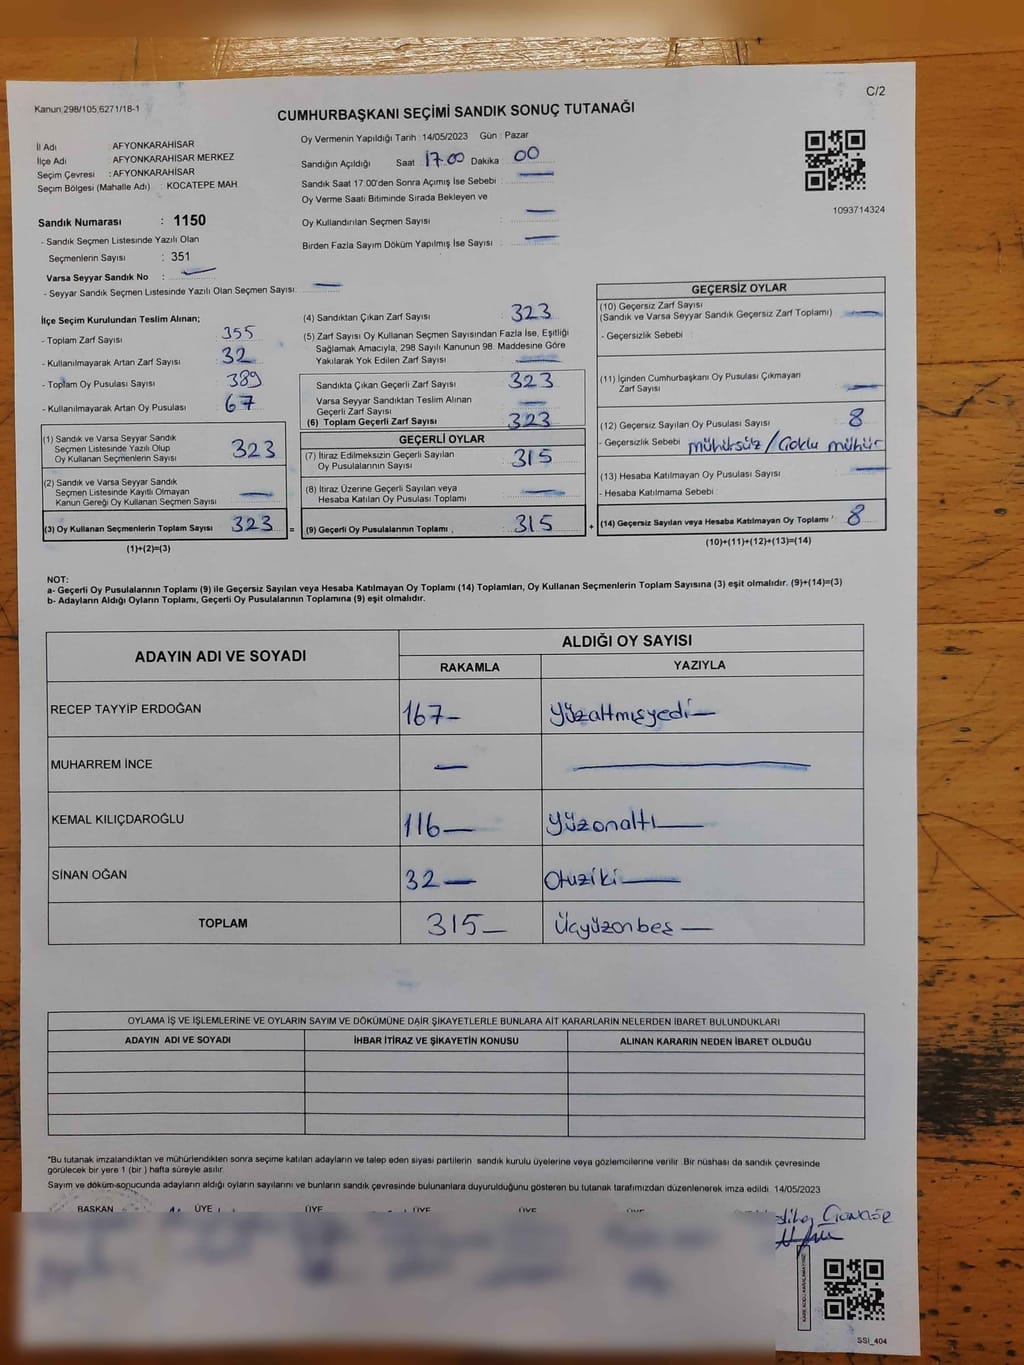 C/2
Kanun 298/105,6271/18-1
CUMHURBAŞKANI SEÇİMİ SANDIK SONUÇ TUTANAĞI
İl Adı : AFYONKARAHİSAR
İlçe Adı : AFYONKARAHİSAR MERKEZ
Seçim Çevresi : AFYONKARAHİSAR
Seçim Bölgesi (Mahalle Adı) : KOCATEPE MAH
Sandık Numarası : 1150
- Sandık Seçmen Listesinde Yazılı Olan
Seçmenlerin Sayısı : 351
Varsa Seyyar Sandık No : —
- Seyyar Sandık Seçmen Listesinde Yazılı Olan Seçmen Sayısı: —
Oy Vermenin Yapıldığı Tarih : 14/05/2023 Gün : Pazar
Sandığın Açıldığı Saat 17.00 Dakika : 00
Sandık Saat 17 00'den Sonra Açımış İse Sebebi : —
Oy Verme Saati Bitiminde Sırada Bekleyen ve
Oy Kullandırılan Seçmen Sayısı —
Birden Fazla Sayım Döküm Yapılmış İse Sayısı : —
1093714324
İlçe Seçim Kurulundan Teslim Alınan;
- Toplam Zarf Sayısı : 355
- Kullanılmayarak Artan Zarf Sayısı : 32
- Toplam Oy Pusulası Sayısı : 389
- Kullanılmayarak Artan Oy Pusulası : 67
(1) Sandık ve Varsa Seyyar Sandık
Seçmen Listesinde Yazılı Olup
Oy Kullanan Seçmenlerin Sayısı : 323
(2) Sandık ve Varsa Seyyar Sandık
Seçmen Listesinde Kayıtlı Olmayan
Kanun Gereği Oy Kullanan Seçmen Sayısı : —
(3) Oy Kullanan Seçmenlerin Toplam Sayısı : 323 =
(1)+(2)=(3)
(4) Sandıktan Çıkan Zarf Sayısı : 323
(5) Zarf Sayısı Oy Kullanan Seçmen Sayısından Fazla İse, Eşitliği
Sağlamak Amacıyla, 298 Sayılı Kanunun 98. Maddesine Göre
Yakılarak Yok Edilen Zarf Sayısı : —
Sandıkta Çıkan Geçerli Zarf Sayısı : 323
Varsa Seyyar Sandıktan Teslim Alınan
Geçerli Zarf Sayısı : —
(6) Toplam Geçerli Zarf Sayısı : 323
GEÇERLİ OYLAR
(7) İtiraz Edilmeksizin Geçerli Sayılan
Oy Pusulalarının Sayısı : 315
(8) İtiraz Üzerine Geçerli Sayılan veya
Hesaba Katılan Oy Pusulası Toplamı : —
(9) Geçerli Oy Pusulalarının Toplamı : 315 +
GEÇERSİZ OYLAR
(10) Geçersiz Zarf Sayısı
(Sandık ve Varsa Seyyar Sandık Geçersiz Zarf Toplamı) : —
- Geçersizlik Sebebi :
(11) İçinden Cumhurbaşkanı Oy Pusulası Çıkmayan
Zarf Sayısı : —
(12) Geçersiz Sayılan Oy Pusulası Sayısı : 8
- Geçersizlik Sebebi : mühürsüz/Çoklu mühür
(13) Hesaba Katılmayan Oy Pusulası Sayısı : —
- Hesaba Katılmama Sebebi :
(14) Geçersiz Sayılan veya Hesaba Katılmayan Oy Toplamı : 8
(10)+(11)+(12)+(13)=(14)
NOT:
a- Geçerli Oy Pusulalarının Toplamı (9) ile Geçersiz Sayılan veya Hesaba Katılmayan Oy Toplamı (14) Toplamları, Oy Kullanan Seçmenlerin Toplam Sayısına (3) eşit olmalıdır. (9)+(14)=(3)
b- Adayların Aldığı Oyların Toplamı, Geçerli Oy Pusulalarının Toplamına (9) eşit olmalıdır.
ADAYIN ADI VE SOYADI ALDIĞI OY SAYISI
RAKAMLA YAZIYLA
RECEP TAYYİP ERDOĞAN 167— Yüzaltmışyedi—
MUHARREM İNCE — —
KEMAL KILIÇDAROĞLU 116— Yüzonaltı—
SİNAN OĞAN 32— Otuziki—
TOPLAM 315— Üçyüzonbeş—
OYLAMA İŞ VE İŞLEMLERİNE VE OYLARIN SAYIM VE DÖKÜMÜNE DAİR ŞİKAYETLERLE BUNLARA AİT KARARLARIN NELERDEN İBARET BULUNDUKLARI
ADAYIN ADI VE SOYADI İHBAR İTİRAZ VE ŞİKAYETİN KONUSU ALINAN KARARIN NEDEN İBARET OLDUĞU
*Bu tutanak imzalandıktan ve mühürlendikten sonra seçime katılan adayların ve talep eden siyasi partilerin sandık kurulu üyelerine veya gözlemcilerine verilir. Bir nüshası da sandık çevresinde
görülecek bir yere 1 (bir ) hafta süreyle asılır.
Sayım ve döküm sonucunda adayların aldığı oyların sayılarını ve bunların sandık çevresinde bulunanlara duyurulduğunu gösteren bu tutanak tarafımızdan düzenlenerek imza edildi. 14/05/2023
BAŞKAN ÜYE ÜYE ÜYE ÜYE ÜYE
SSI_404